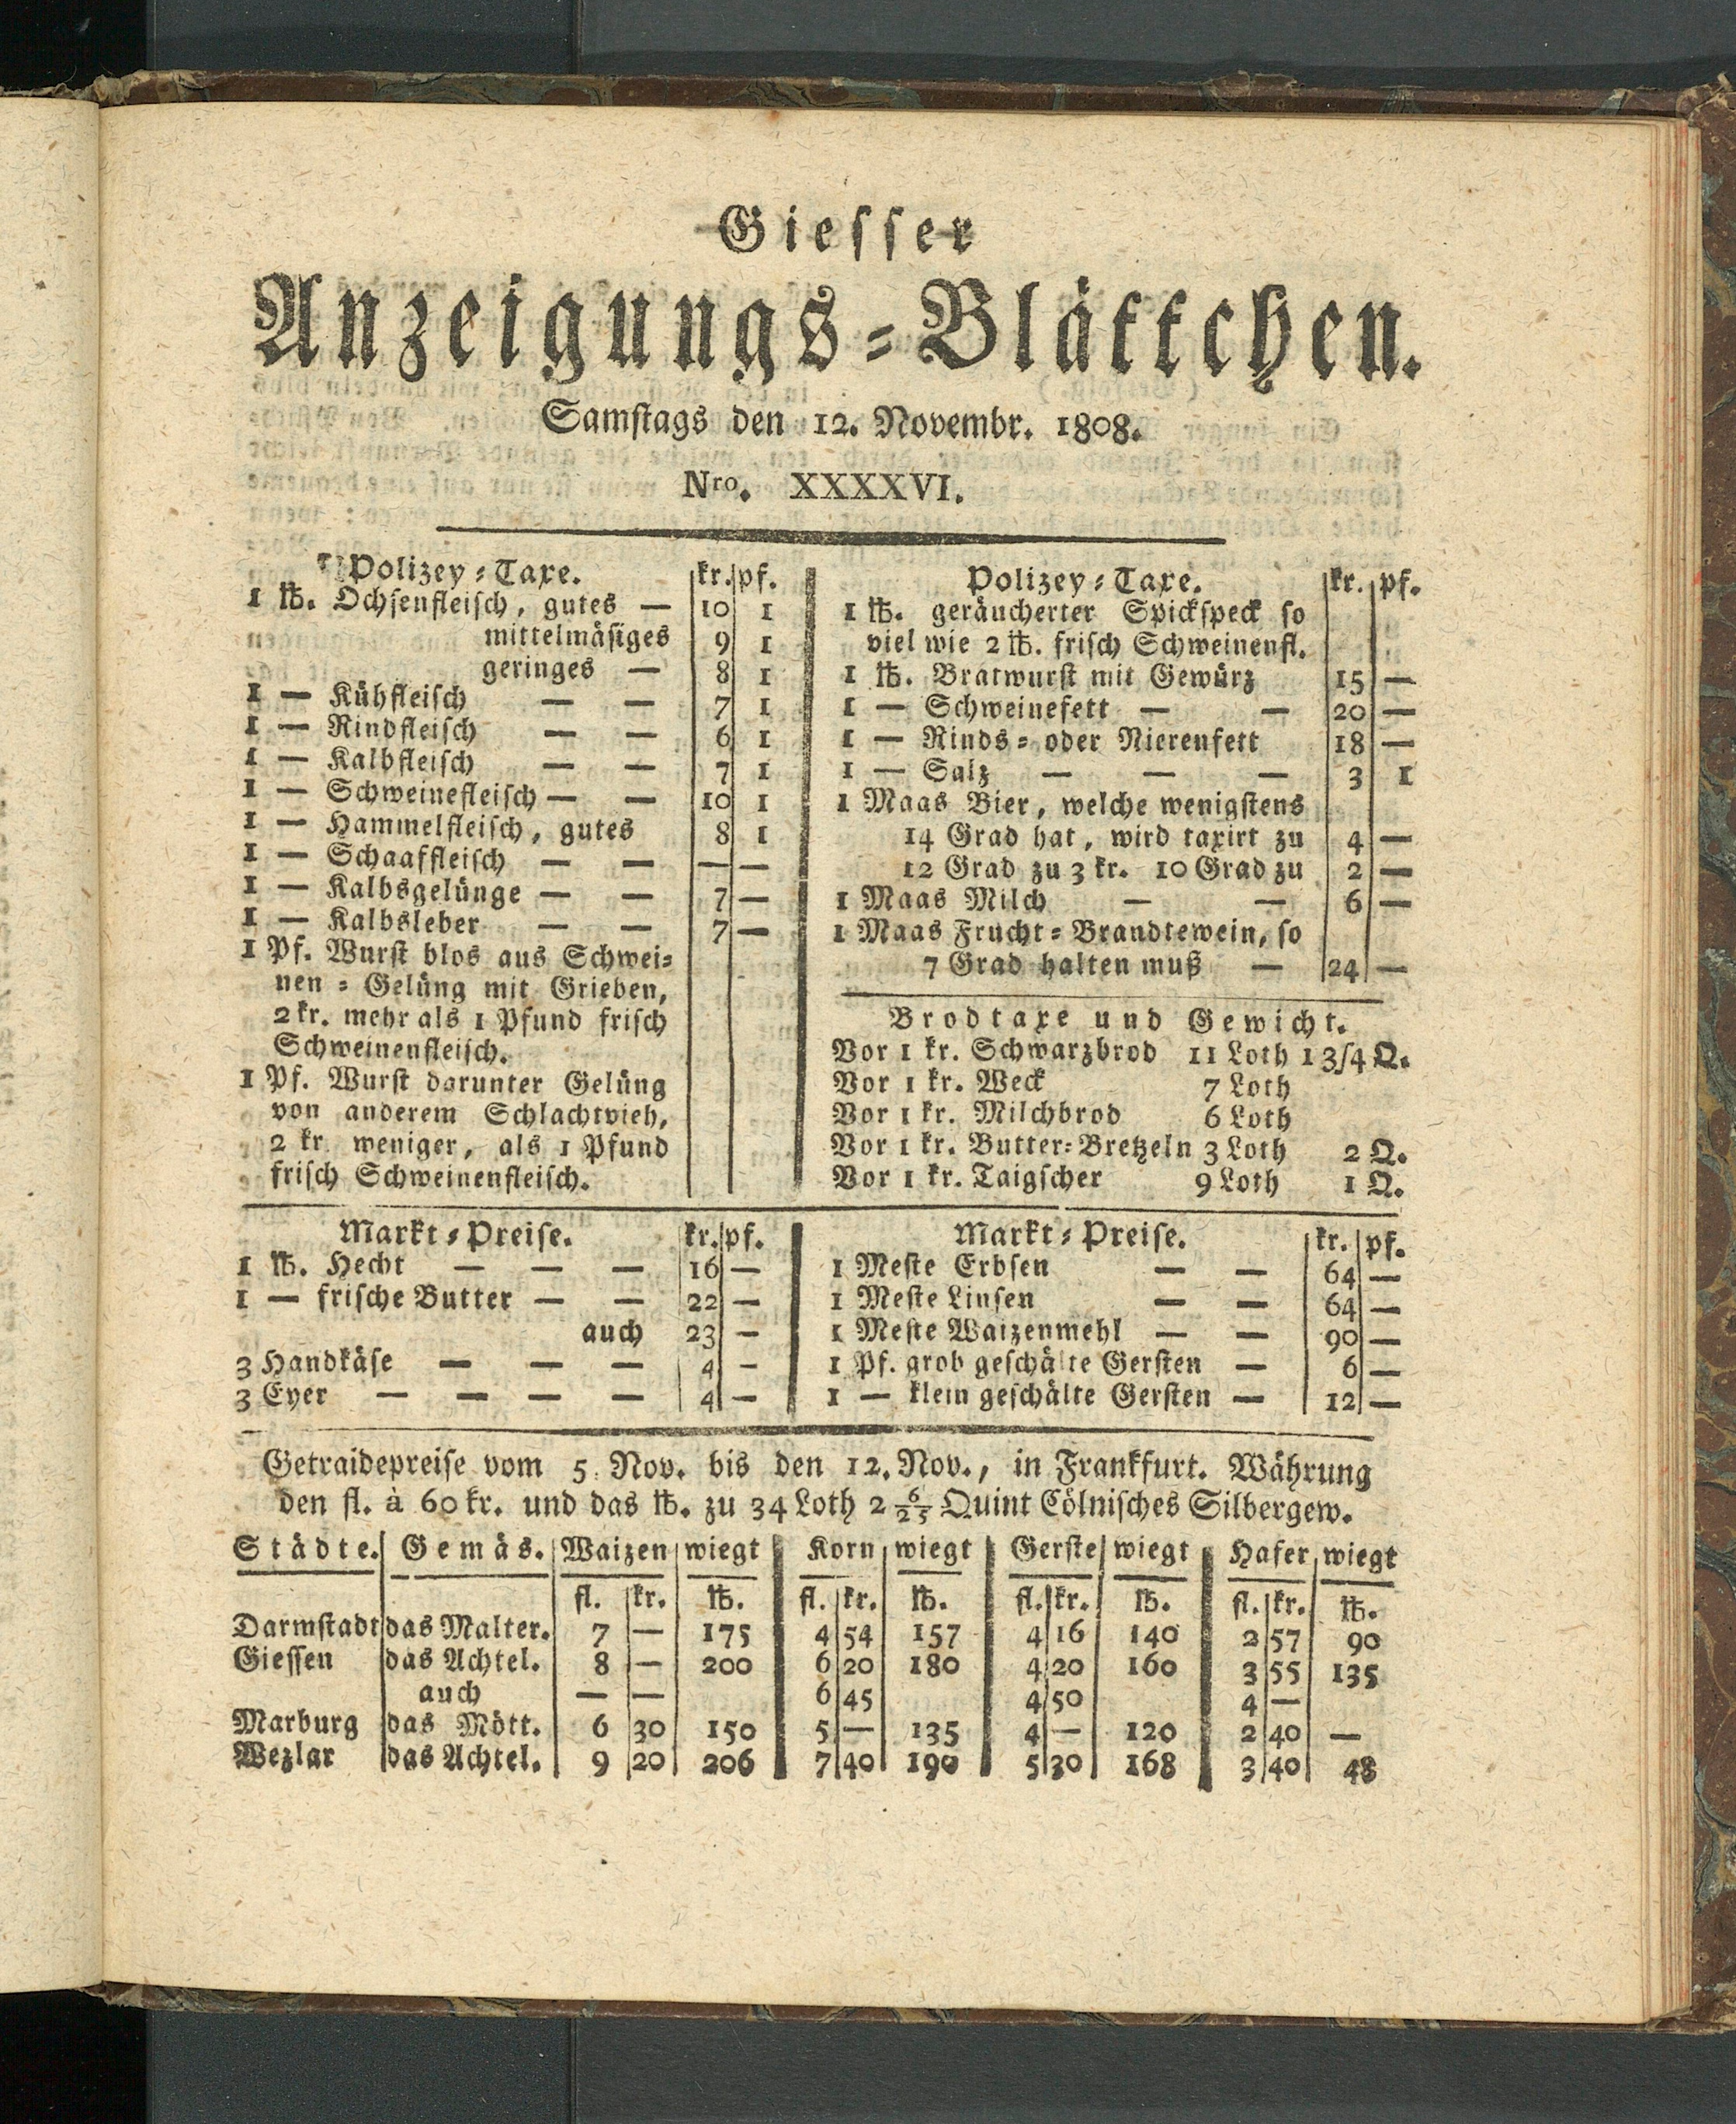 Giesser
Anzeigungs-Blättchen.
Samstags den 12. Novembr. 1808.
Nro. XXXXVI.
Polizey-Taxe. kr. pf.
1 ℔. Ochsenfleisch, gutes — 10 1
mittelmäsiges 9 1
geringes — 8 1
1 — Kühfleisch — — 7 1
1 — Rindfleisch — — 6 1
1 — Kalbfleisch — — 7 1
1 — Schweinefleisch — — 10 1
1 — Hammelfleisch, gutes 8 1
1 — Schaaffleisch — — — —
1 — Kalbsgelünge — — 7 —
1 — Kalbsleber — — 7 —
1 Pf. Wurst blos aus Schwei-
nen-Gelüng mit Grieben,
2 kr. mehr als 1 Pfund frisch
Schweinenfleisch.
1 Pf. Wurst darunter Gelüng
von anderem Schlachtvieh,
2 kr. weniger, als 1 Pfund
frisch Schweinenfleisch.
Polizey-Taxe. kr. pf.
1 ℔. geräucherter Spickspeck so
viel wie 2 ℔. frisch Schweinenfl.
1 ℔. Bratwurst mit Gewürz 15 —
1 — Schweinefett — — 20 —
1 — Rinds- oder Nierenfett 18 —
1 — Salz — — — 3 1
1 Maas Bier, welche wenigstens
14 Grad hat, wird taxirt zu 4 —
12 Grad zu 3 kr. 10 Grad zu 2 —
1 Maas Milch — — 6 —
1 Maas Frucht-Brandtewein, so
7 Grad halten muß — 24 —
Brodtaxe und Gewicht.
Vor 1 kr. Schwarzbrod 11 Loth 1 3/4 Q.
Vor 1 kr. Weck 7 Loth
Vor 1 kr. Milchbrod 6 Loth
Vor 1 kr. Butter-Bretzeln 3 Loth 2 Q.
Vor 1 kr. Taigscher 9 Loth 1 Q.
Markt-Preise. kr. pf.
1 ℔. Hecht — — — 16 —
1 — frische Butter — — 22 —
auch 23 —
3 Handkäse — — — 4 —
3 Eyer — — — — 4 —
Markt-Preise. kr. pf.
1 Meste Erbsen — — 64 —
1 Meste Linsen — — 64 —
1 Meste Waizenmehl — — 90 —
1 Pf. grob geschälte Gersten — 6 —
1 — klein geschälte Gersten — 12 —
Getraidepreise vom 5. Nov. bis den 12. Nov., in Frankfurt. Währung
den fl. à 60 kr. und das ℔. zu 34 Loth 2 6/25 Quint Cölnisches Silbergew.
Städte. Gemäs. Waizen wiegt Korn wiegt Gerste wiegt Hafer wiegt
fl. kr. ℔. fl. kr. ℔. fl. kr. ℔. fl. kr. ℔.
Darmstadt das Malter. 7 — 175 4 54 157 4 16 140 2 57 90
Giessen das Achtel. 8 — 200 6 20 180 4 20 160 3 55 135
auch — — 6 45 4 50 4 —
Marburg das Mött. 6 30 150 5 — 135 4 — 120 2 40 —
Wezlar das Achtel. 9 20 206 7 40 190 5 30 168 3 40 48